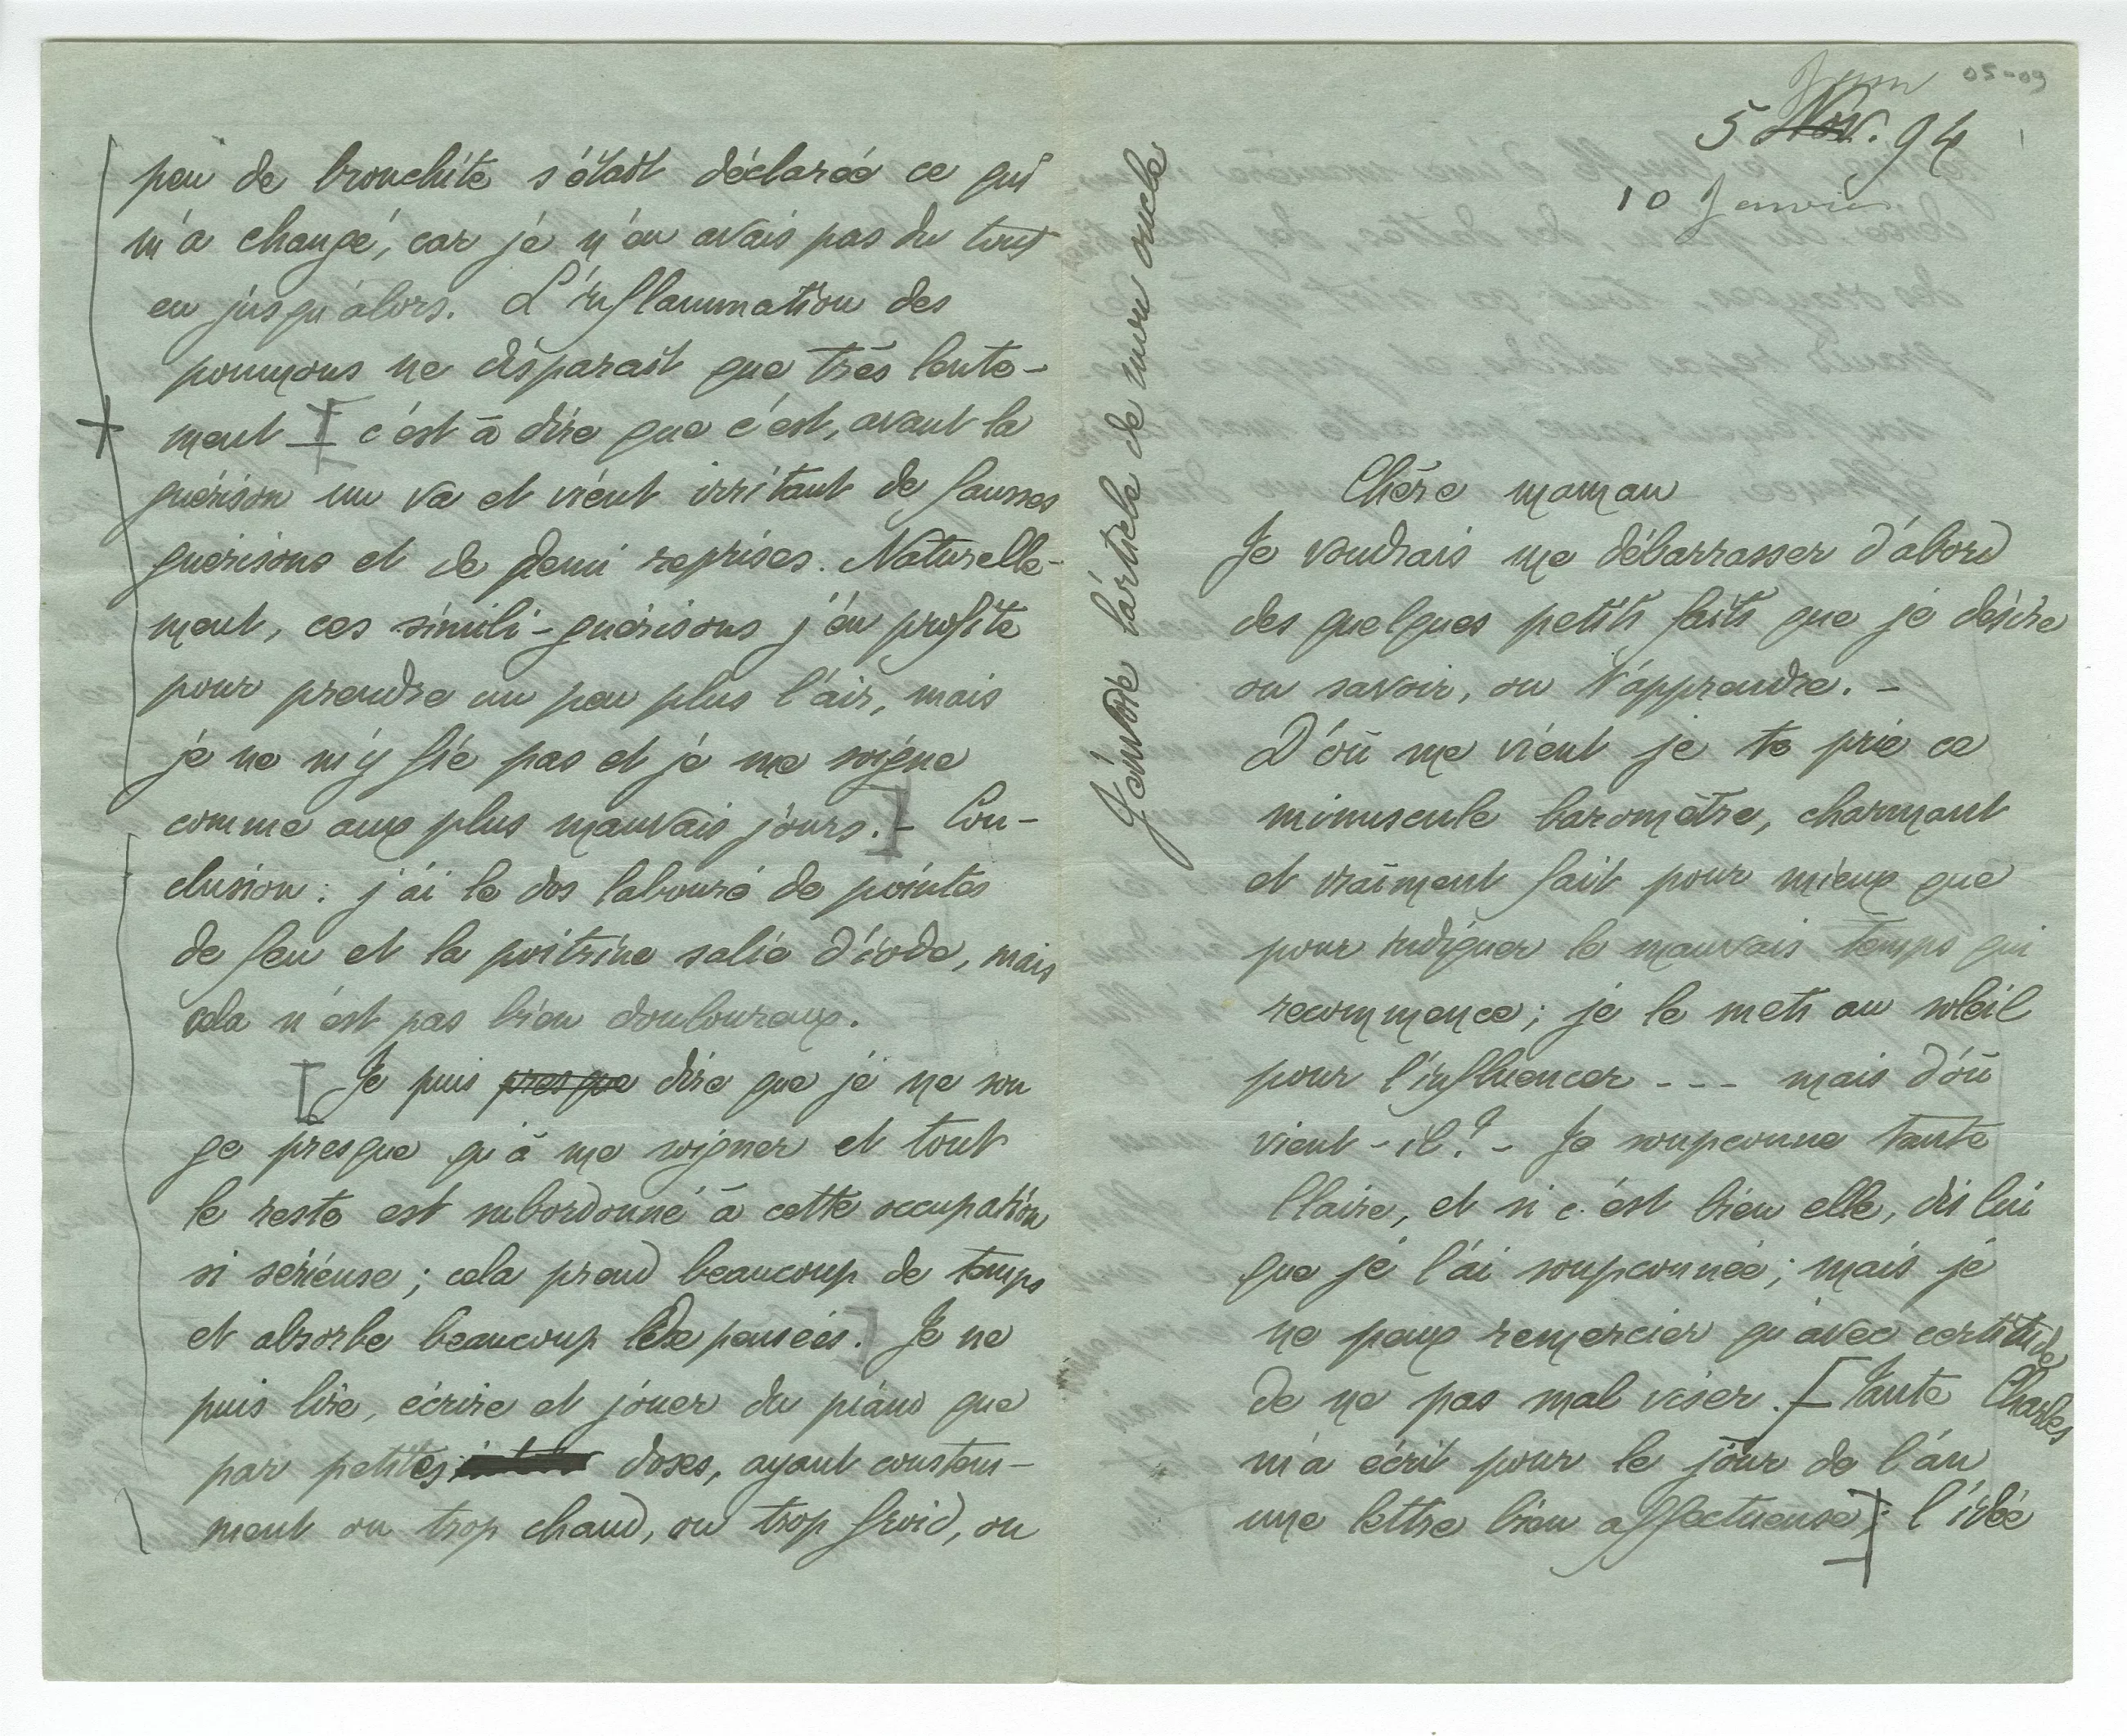 peu de bronchite s'était déclarée ce qui
m'a changé, car je n'en avais pas du tout
eu jusqu'alors. L'inflammation des
poumons ne disparait que très lente-
ment c'est à dire que c'est, avant la
guérison un va et vient irritant de fausses
guérisons et de demi reprises. Naturelle-
ment, ces simili-guérisons j'en profite
pour prendre un peu plus l'air, mais
je ne m'y fie pas et je me soigne
comme aux plus mauvais jours.] - Con-
clusion : j'ai le dos labouré de pointes
de feu et la poitrine salie d'iode, mais
cela n'est pas bien douloureux.
[ Je puis presque dire que je ne son
ge presque qu'à me soigner et tout
le reste est subordonné à cette occupation
si sérieuse ; cela prend beaucoup de temps
et absorbe beaucoup de pensées.] Je ne
puis lire, écrire et jouer du piano que
par petites doses, ayant constam-
ment ou trop chaud, ou trop froid, ou
J'envoie l'article de mon oncle
05-09
Janv
5 Nov. 94
10 Janvier
Chère maman
Je voudrais me débarrasser d'abord
des quelques petits faits que je désire
ou savoir, ou t'apprendre. -
D'où me vient je te prie ce
minuscule baromètre, charmant
et vraiment fait pour mieux que
pour indiquer le mauvais temps qui
recommence ; je le mets au soleil
pour l'influencer - - - mais d'où
vient-il ? - Je soupconne tante
Claire, et si c'est bien elle, dis lui
que je l'ai soupconnée ; mais je
ne peux remercier qu'avec certitude
de ne pas mal viser. [ Tante Charles
m'a écrit pour le jour de l'an
une lettre bien affectueuse] ; l'idée